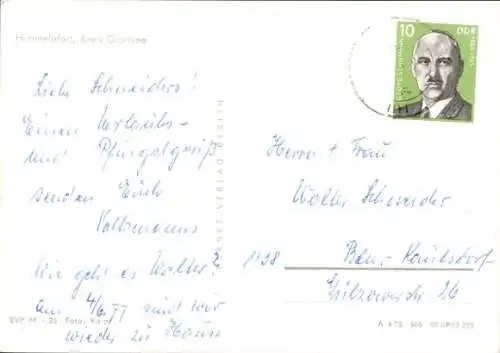 Himmelpfort, Kreis Gransee
Liebe Schneiders!
Einen Urlaubs-
und Pfingstgruß
senden Euch
Volkmanns
Wie geht es Walter?
am 4/6. 77 sind wir
wieder zu Hause
EVP M -,25 Foto:
VERLAG BERLIN
10
DDR
Herrn + Frau
Walter Schneider
1138 Bln.-Kaulsdorf
26
A 1/75